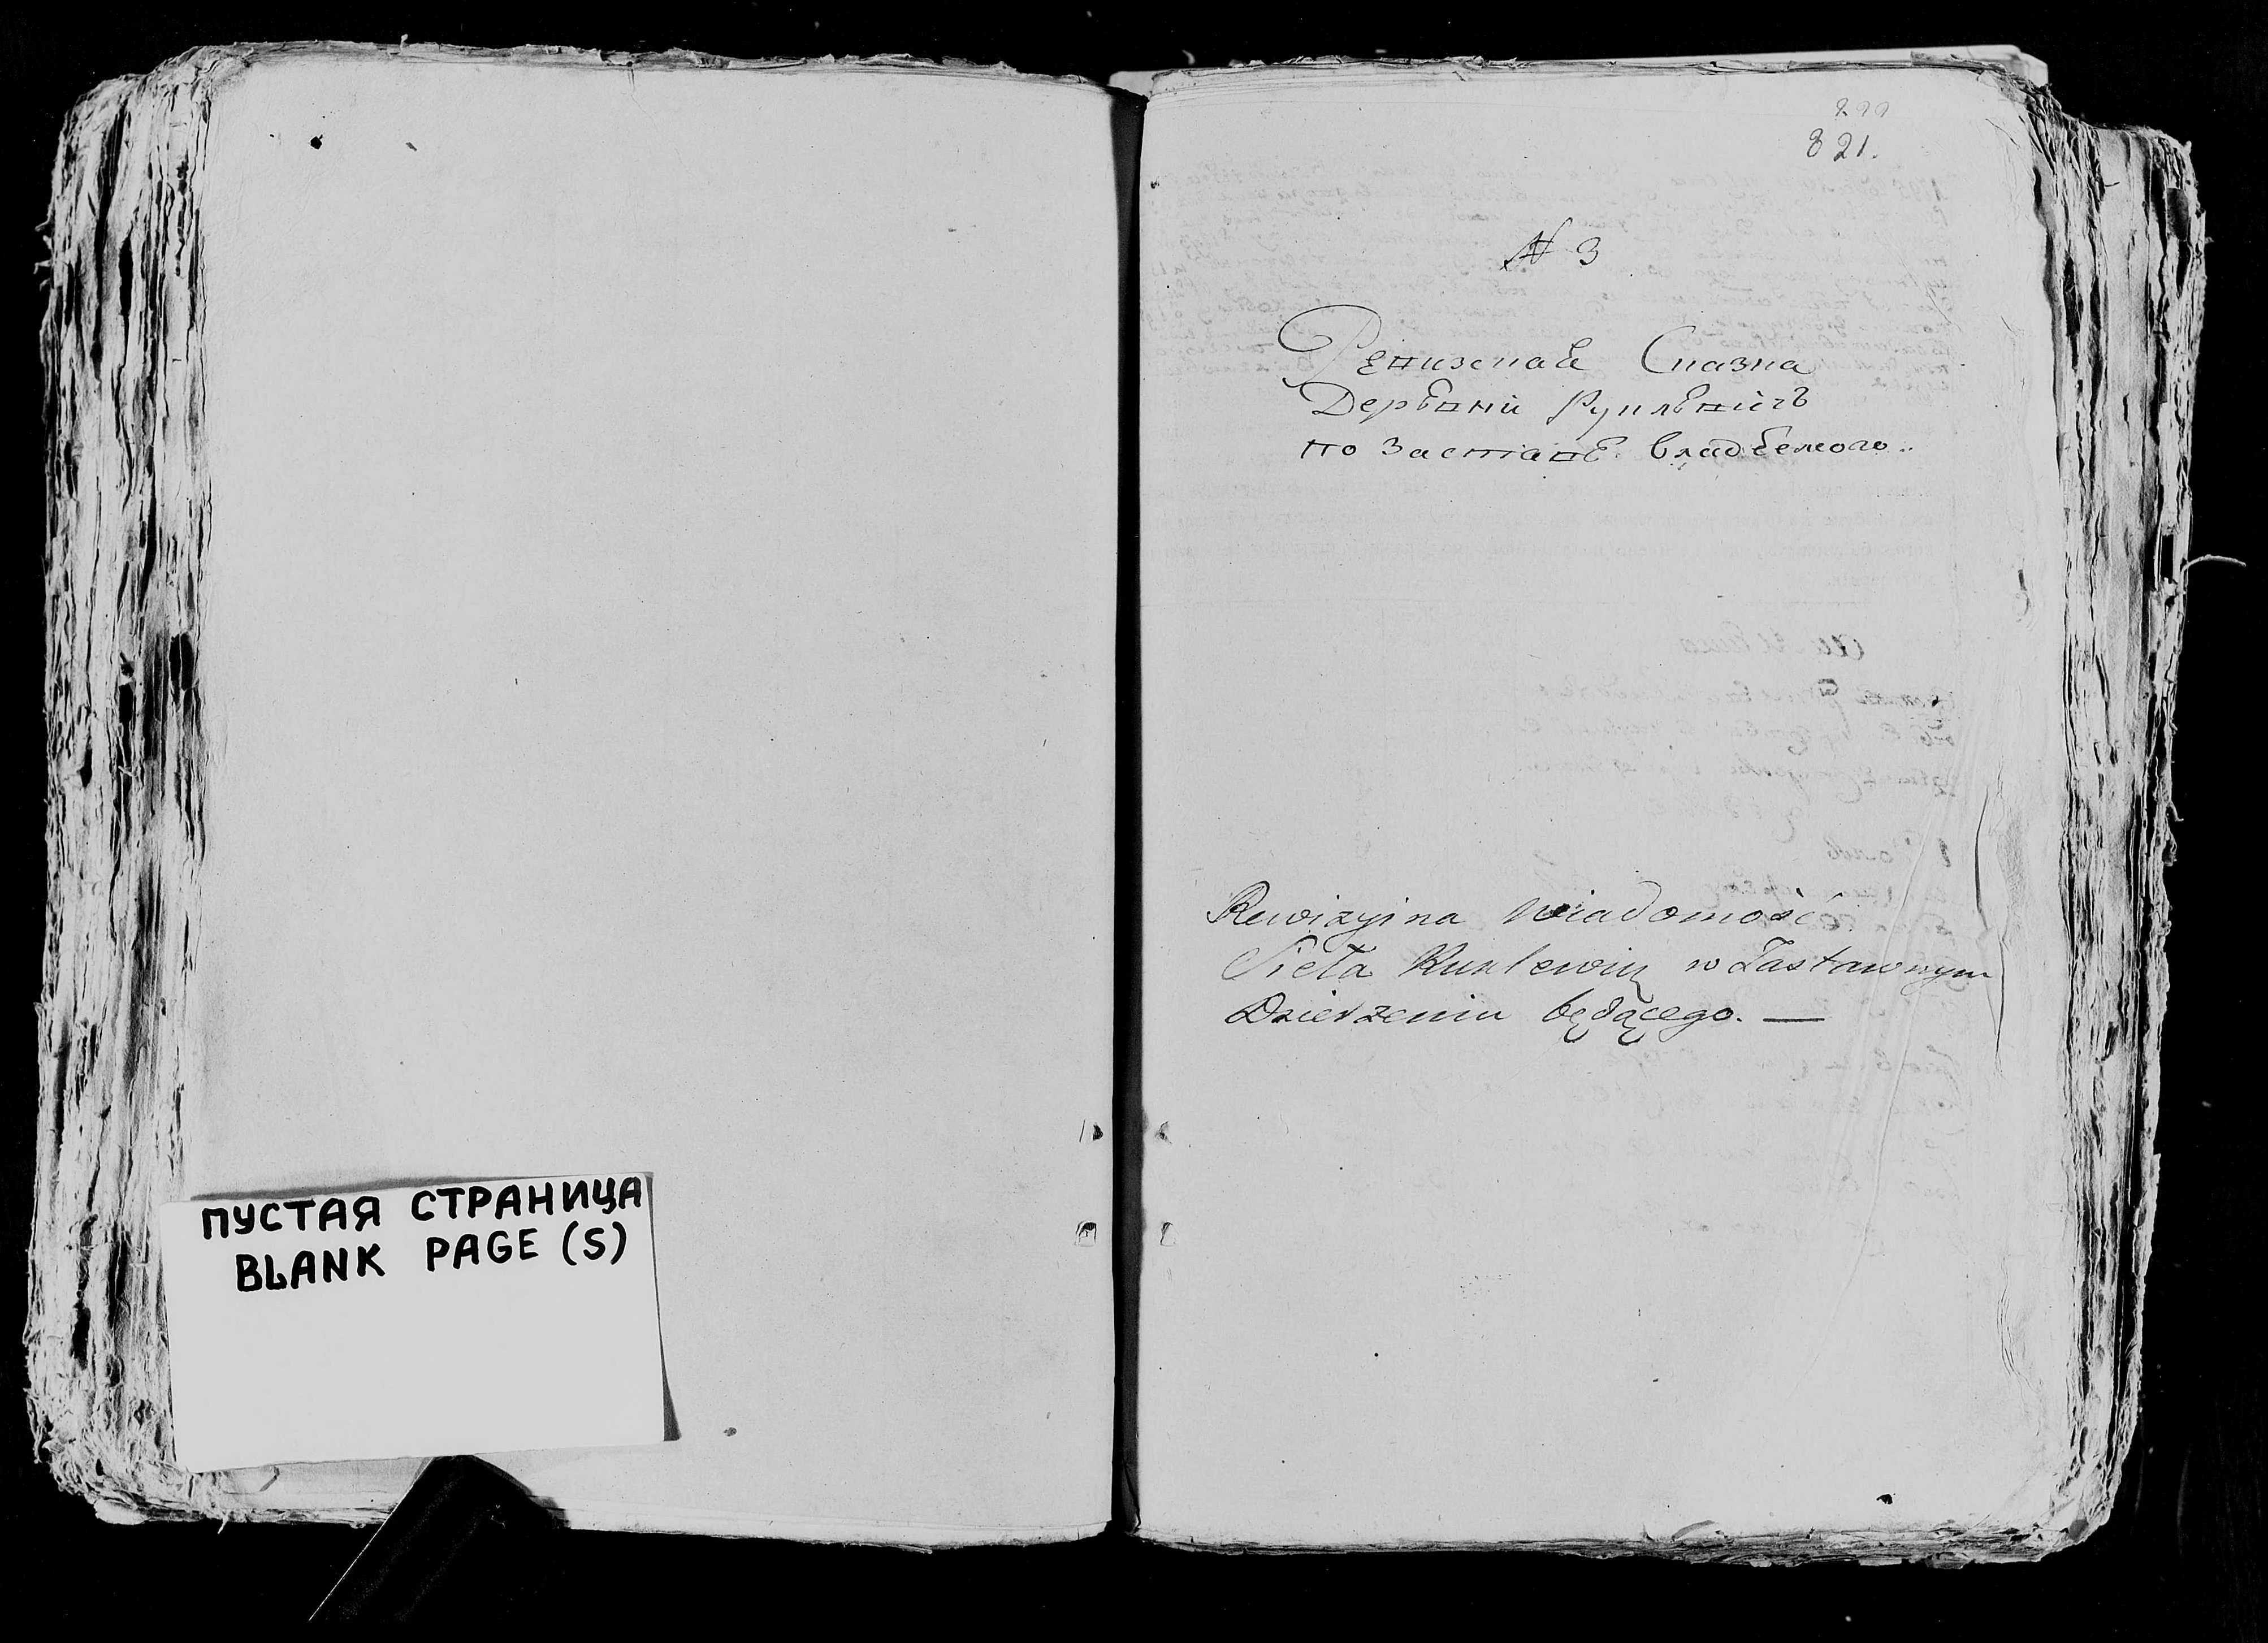 ПУСТАЯ СТРАНИЦА
BLANK PAGE (S)
821.
№ 3
Ревизскаѣ Сказка
Деревни Руклевичъ
по Заставѣ владѣемого.
Rewizyjna Wiadomość
Sieła Ruklewicz w Zastawnym
Dzierzeniu będącego. —